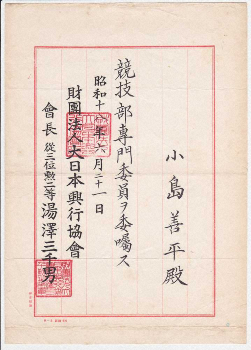 小島善平殿
競技部專門委員ヲ委囑ス
昭和十七年六月二十一日
財團法人大日本興行協會
會長 從三位勲二等 湯澤三千男